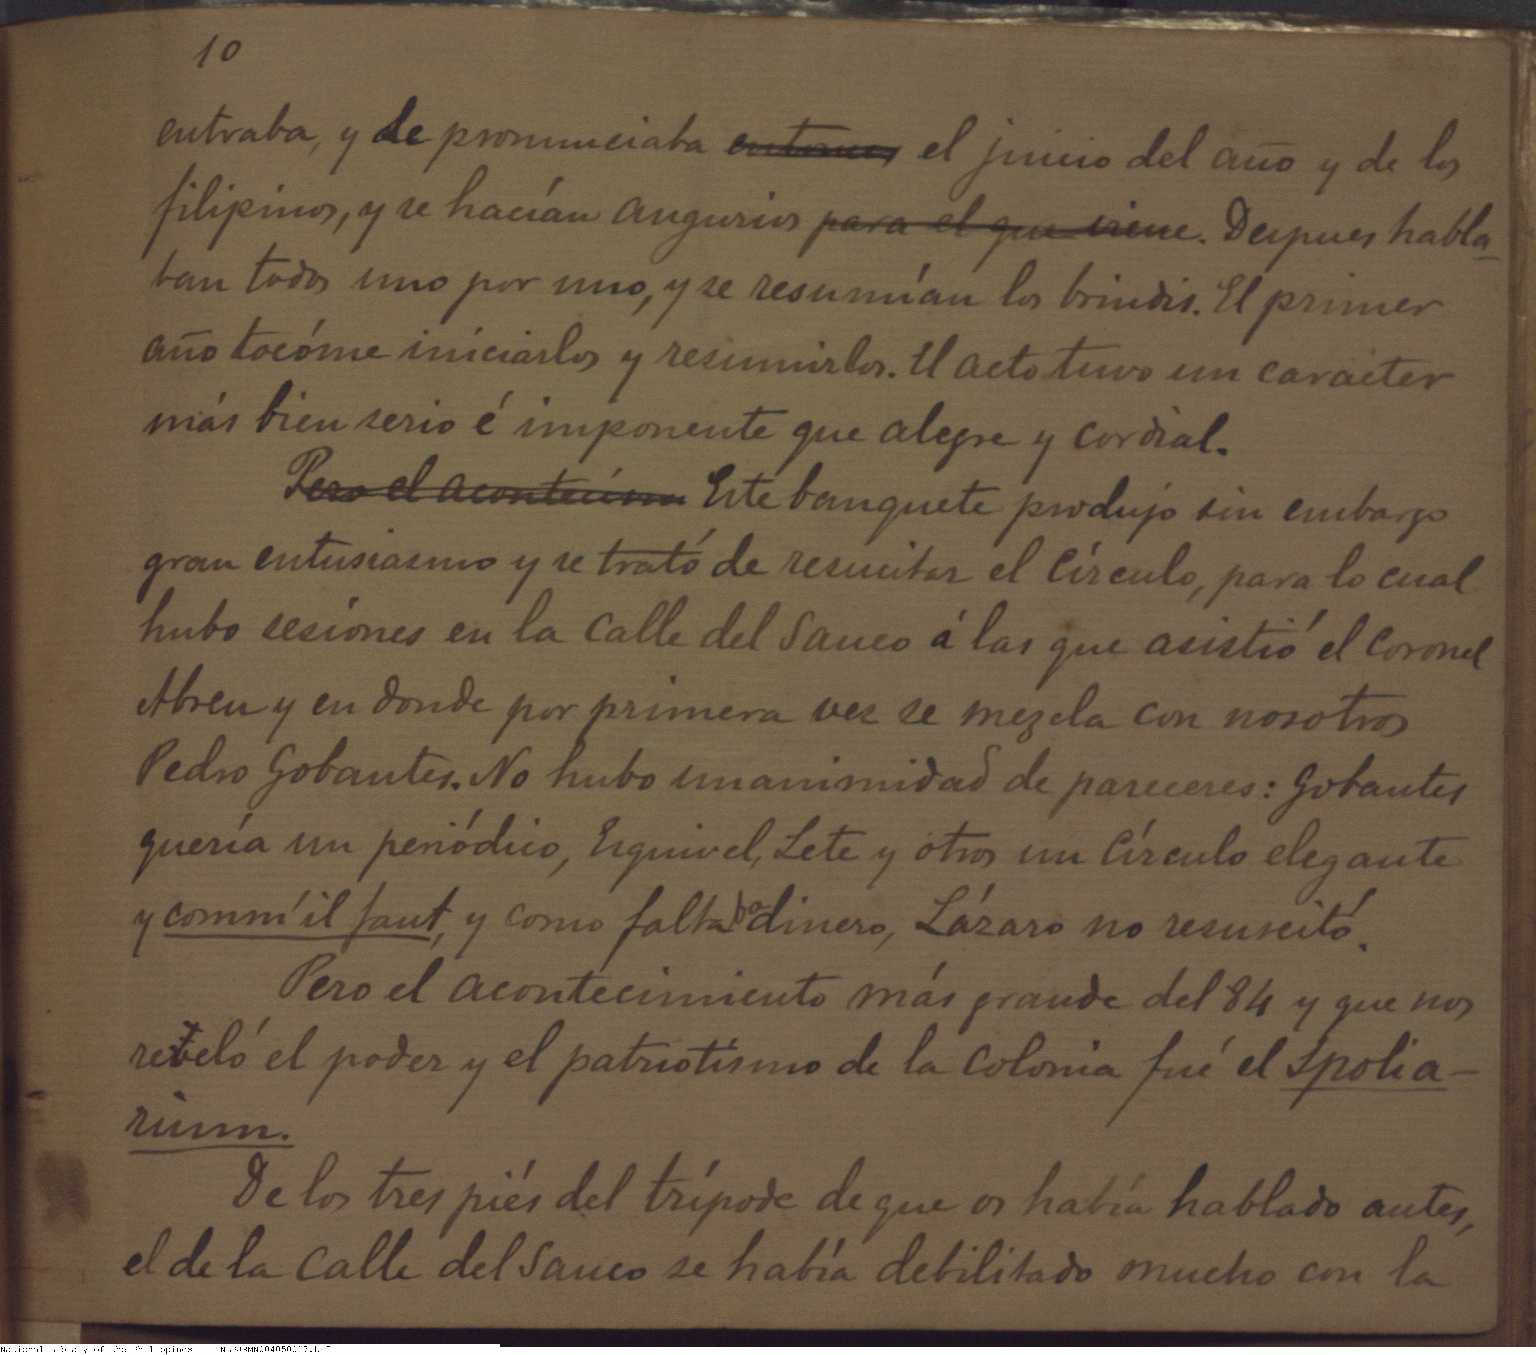 10
entraba, y se pronunciaba entonces el juicio del año y de los
filipinos, y se hacían augurios para el que viene. Despues habla-
ban todos uno por uno, y se resumían los brindis. El primer
año tocóme iniciarlos y resumirlos. El acto tuvo un caracter
más bien serio é imponente que alegre y cordial.
Pero el acontecim Este banquete produjo sin embargo
gran entusiasmo y se trató de resucitar el Círculo, para lo cual
hubo sesiones en la calle del Sauco á las que asistió el Coronel
Abreu y en donde por primera vez se mezcla con nosotros
Pedro Gobantes. No hubo unanimidad de pareceres: Gobantes
quería un periódico, Esquivel, Lete y otros un Círculo elegante
y comm'il faut, y como faltaba dinero, Lázaro no resuscitó.
Pero el acontecimiento más grande del 84 y que nos
reveló el poder y el patriotismo de la colonia fué el Spolia-
rium.
De los tres piés del trípode de que os había hablado antes,
el de la calle del Sauco se había debilitado mucho con la
National Library of the Philippines